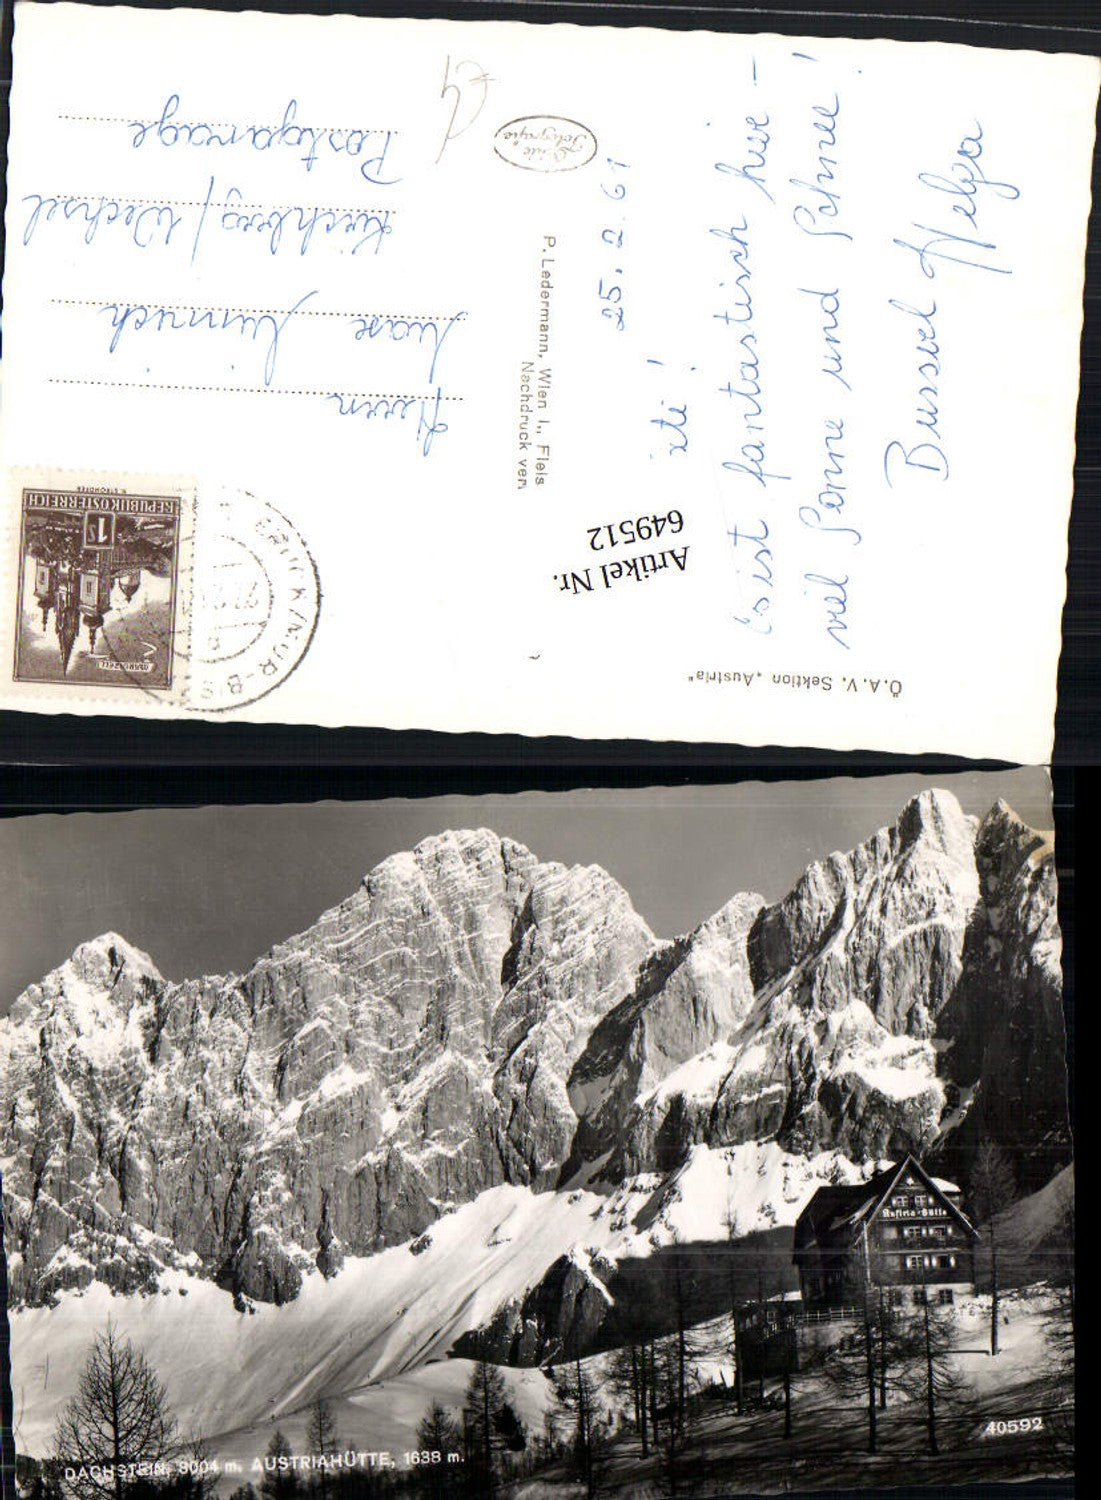 Ö.A.V. Sektion „Austria"
25. 2. 61
Es ist fantastisch hier –
viel Sonne und Schnee!
Bussel Helga
P. Ledermann, Wien I., Fleis
Nachdruck ver
Echte
Fotografie
REPUBLIK ÖSTERREICH
1 S
MARIAZELL
BRUCK / MUR-B
Herrn
Kirchberg / Wechsel
Postgarage
Artikel Nr.
649512
Austria-Hütte
DACHSTEIN, 3004 m, AUSTRIAHÜTTE, 1638 m.
40592